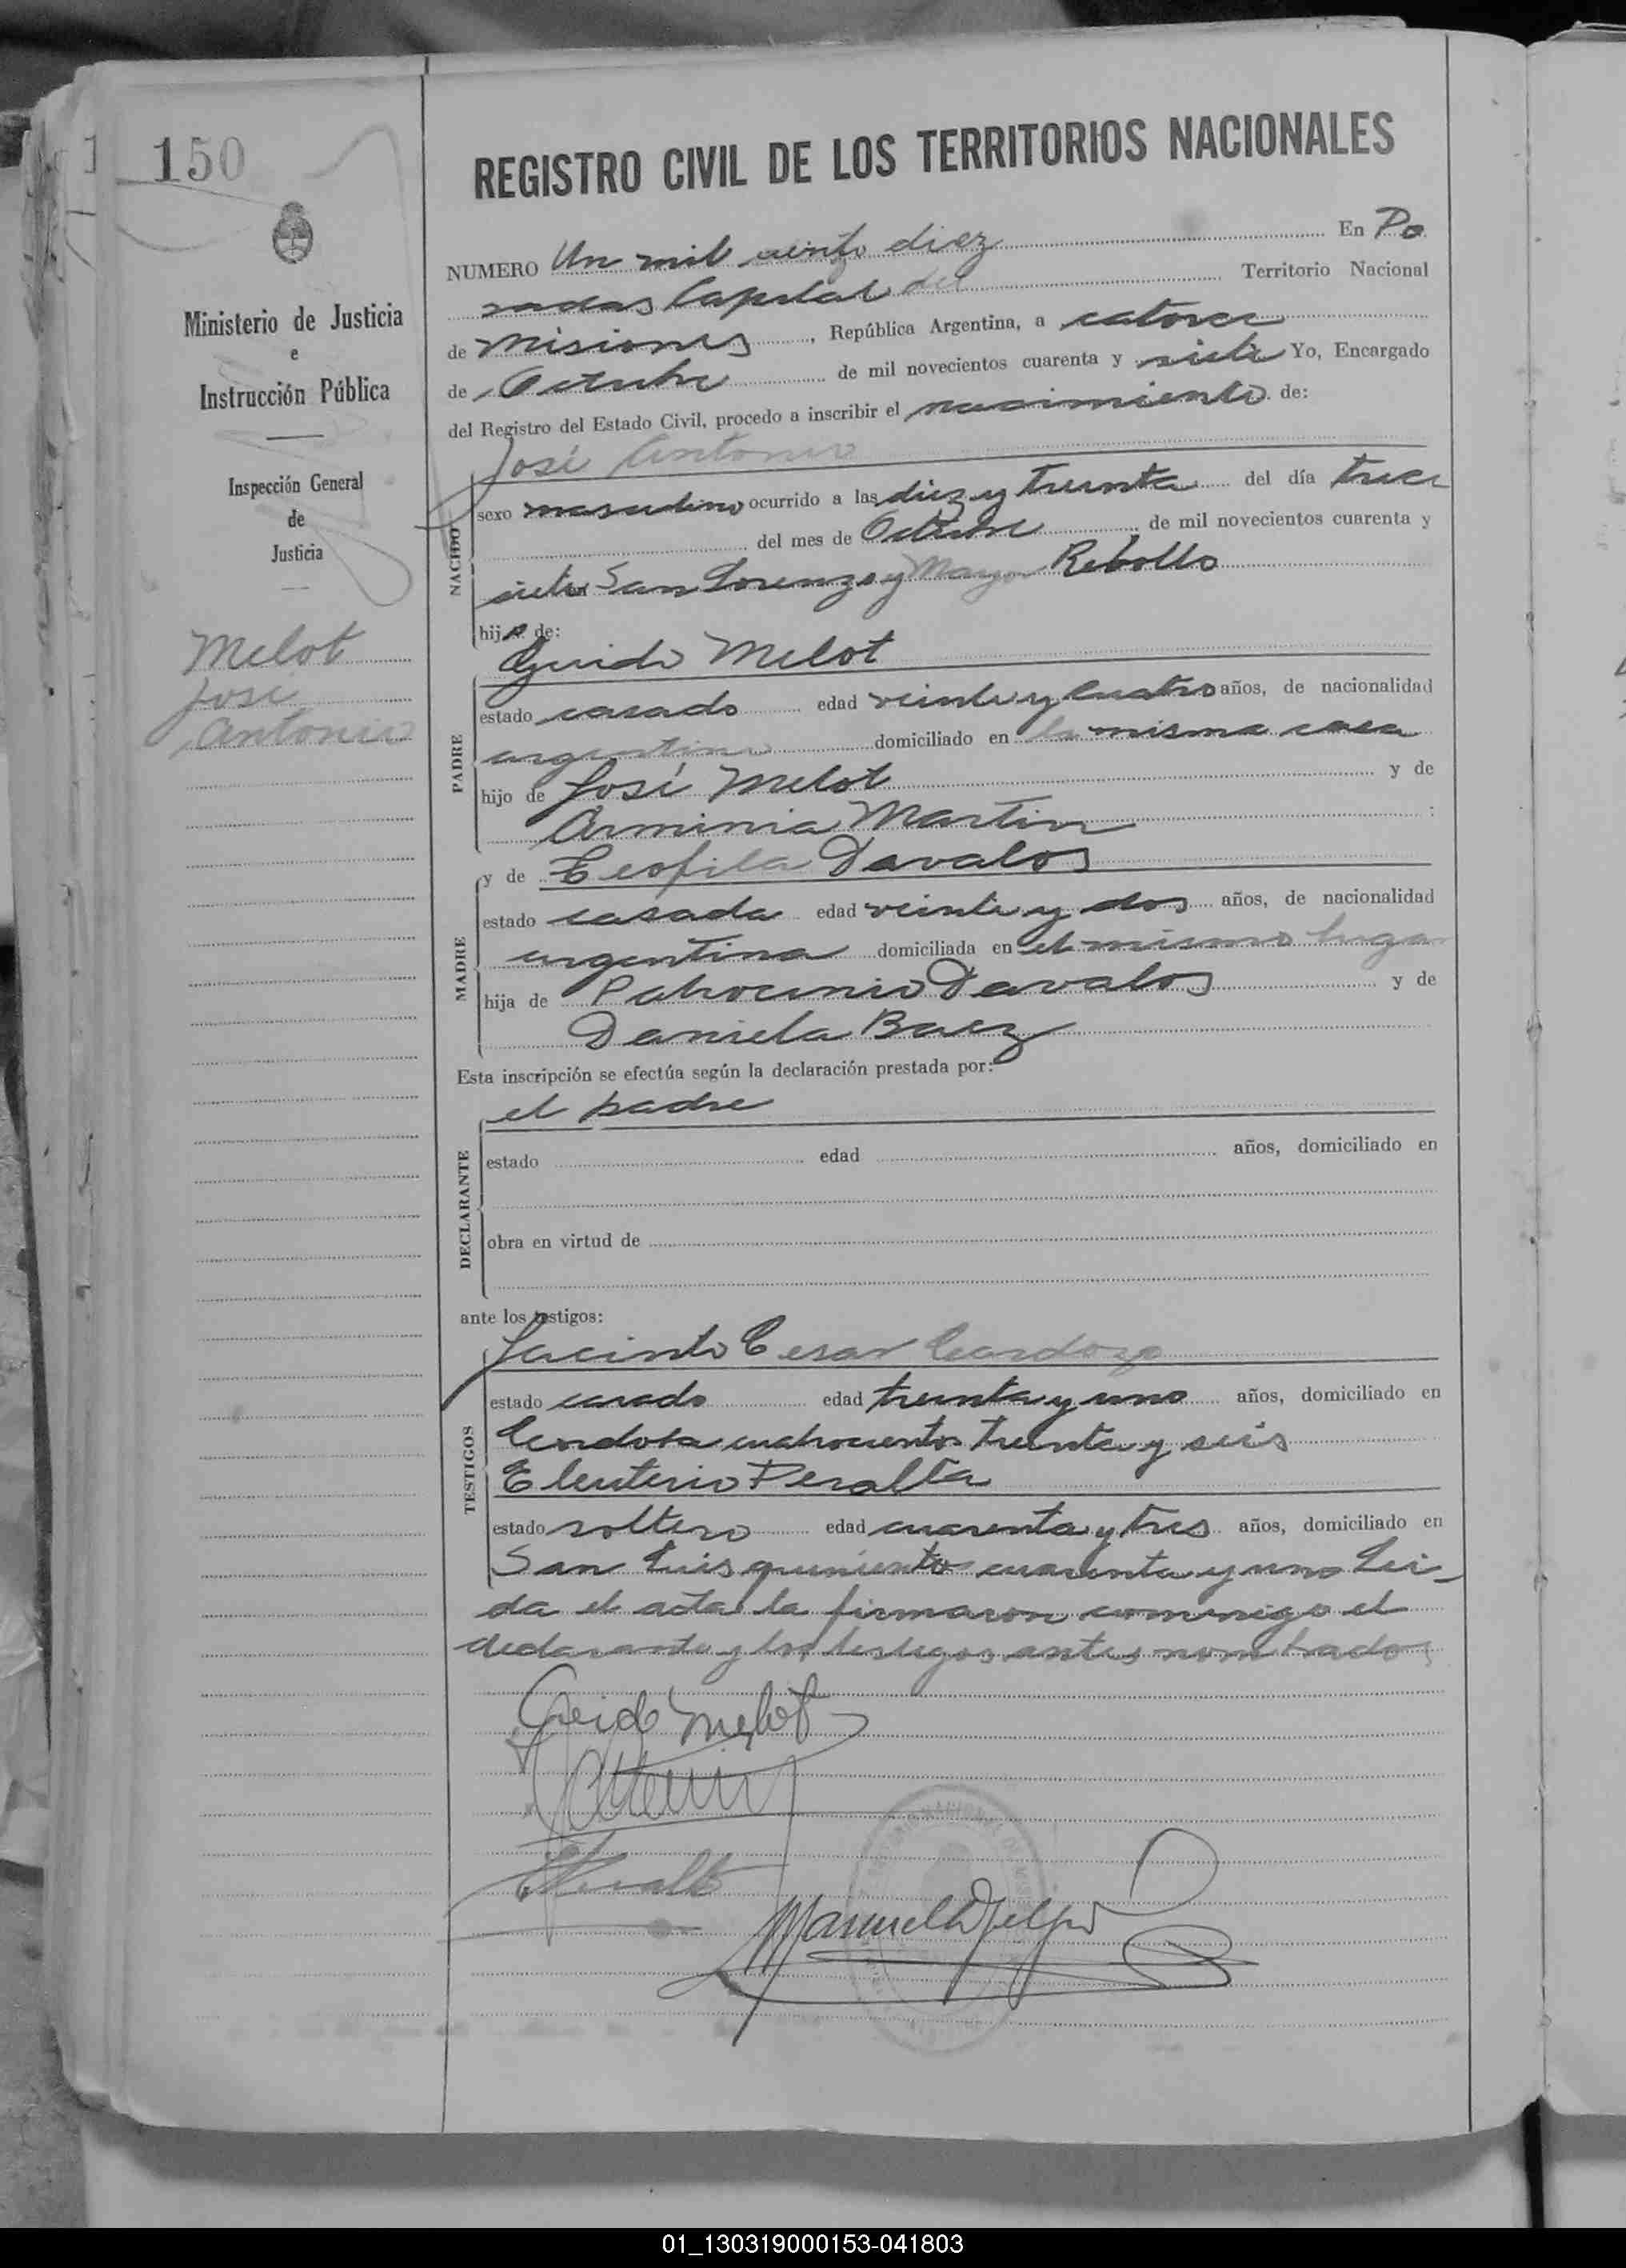 150
REGISTRO CIVIL DE LOS TERRITORIOS NACIONALES
NUMERO Un mil ciento diez En Po
sadas Capital del Territorio Nacional
de Misiones, República Argentina, a catorce
de Octubre de mil novecientos cuarenta y siete Yo, Encargado
del Registro del Estado Civil, procedo a inscribir el nacimiento de:
Ministerio de Justicia
e
Instrucción Pública
Inspección General
de
Justicia
Melot
José
Antonio
NACIDO
José Antonio
sexo masculino ocurrido a las diez y treinta del día trece
del mes de Octubre de mil novecientos cuarenta y
siete San Lorenzo y Mayor Rebollo
hijo de:
PADRE
Guido Melot
estado casado edad veinte y cuatro años, de nacionalidad
argentina domiciliado en la misma casa
hijo de José Melot y de
Arminia Martin
MADRE
y de Teofila Davalos
estado casada edad veinte y dos años, de nacionalidad
argentina domiciliada en el mismo lugar
hija de Patrocinio Davalos y de
Daniela Baez
Esta inscripción se efectúa según la declaración prestada por:
el padre
DECLARANTE
estado edad años, domiciliado en
obra en virtud de
ante los testigos:
TESTIGOS
Jacinto Cesar Cardozo
estado casado edad treinta y uno años, domiciliado en
Cordoba cuatrocientos treinta y seis
Eleuterio Peralta
estado soltero edad cuarenta y tres años, domiciliado en
San Luis quinientos cuarenta y uno Lei-
da el acta la firmaron conmigo el
declarante y los testigos antes nombrados
Guido Melot
01_130319000153-041803